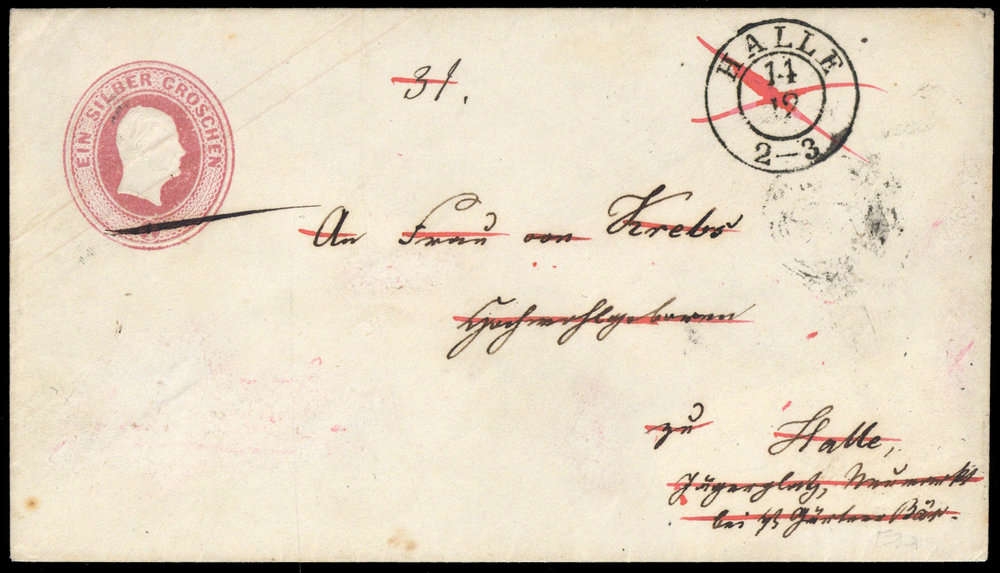 EIN SILBER GROSCHEN
31.
HALLE
14
12
2-3
An Frau von Krebs
Hochwohlgeboren
zu Halle,
Jägerplatz, Neumarkt
bei Gärtner Bär.